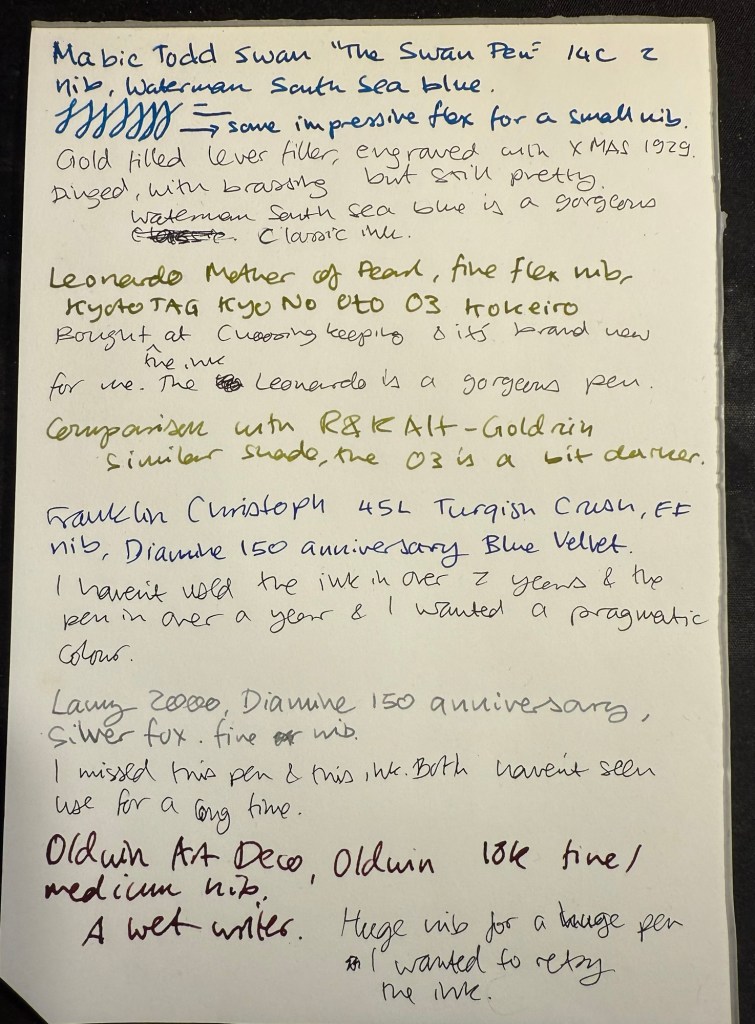 Mabie Todd Swan "The Swan Pen" 14C 2
nib, Waterman South Sea blue.
→ some impressive flex for a small nib.
Gold filled lever filler, engraved with XMAS 1929.
Dinged, with brassing but still pretty.
Waterman South sea blue is a gorgeous
Classic ink.
Leonardo Mother of Pearl, fine flex nib,
Kyoto TAG Kyo No Oto 03 Kokeiro
Bought at keeping & it's brand new
the ink
for me. The Leonardo is a gorgeous pen.
Comparison with R&K Alt-Goldrün
Similar shade, the 03 is a bit darker.
Franklin Christoph 45L Turqish Crush, EF
nib, Diamine 150 anniversary Blue Velvet.
I haven't used the ink in over 2 years & the
pen in over a year & I wanted a pragmatic
colour.
Lamy 2000, Diamine 150 anniversary,
Silver fox. fine nib.
I missed this pen & this ink. Both haven't seen
use for a long time.
Oldwin Art Deco, Oldwin 18k fine/
medium nib.
A wet writer. Huge nib for a huge pen
I wanted to retry
the ink.